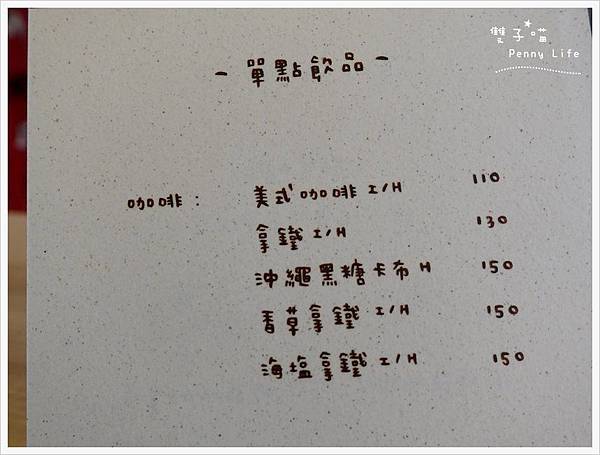 雙子喵
Penny Life
- 單點飲品 -
咖啡: 美式咖啡 I/H 110
拿鐵 I/H 130
沖繩黑糖卡布 H 150
香草拿鐵 I/H 150
海塩拿鐵 I/H 150